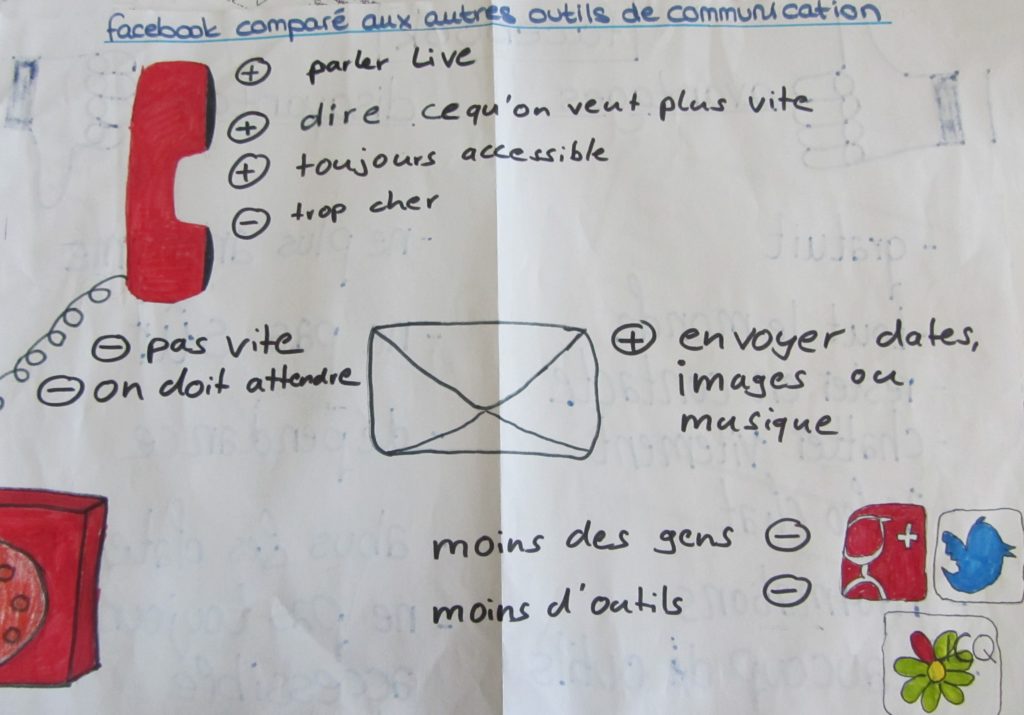 facebook comparé aux autres outils de communication
⊕ parler Live
⊕ dire cequ'on veut plus vite
⊕ toujours accessible
⊖ trop cher
⊖ pas vite
⊖ on doit attendre
⊕ envoyer dates,
images ou
musique
moins des gens ⊖
moins d'outils ⊖
g+
ICQ